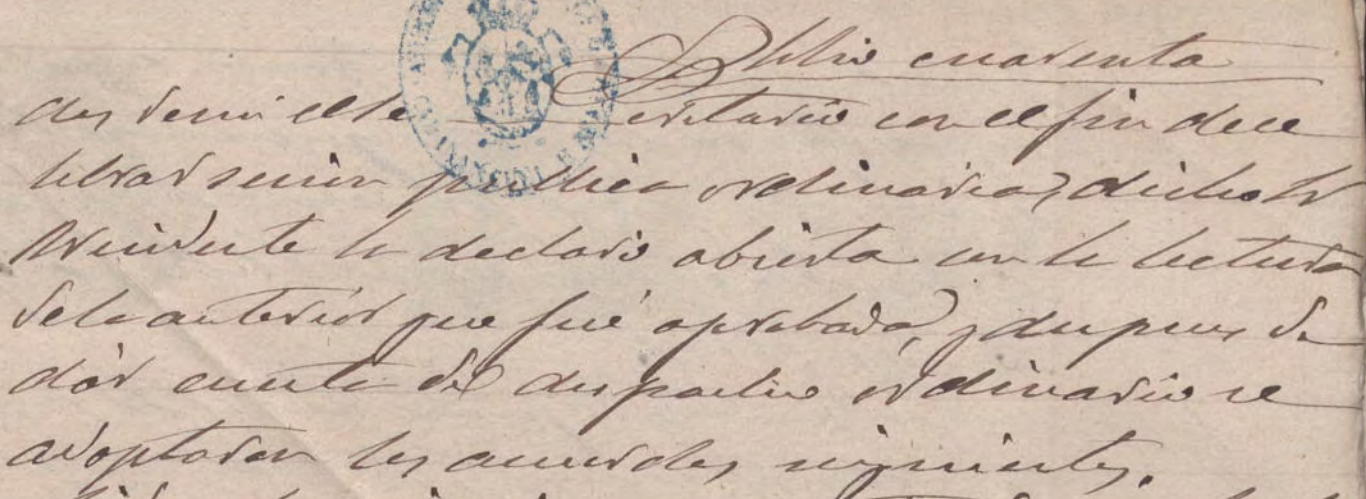 Folio cuarenta
dos de mi el Secretario con el fin de ce
lebrar sesion publica ordinaria, dicho Sr
Presidente la declaró abierta con la lectura
de la anterior que fué aprobada, y despues de
dár cuenta del despacho ordinario se
adoptaron los acuerdos siguientes.